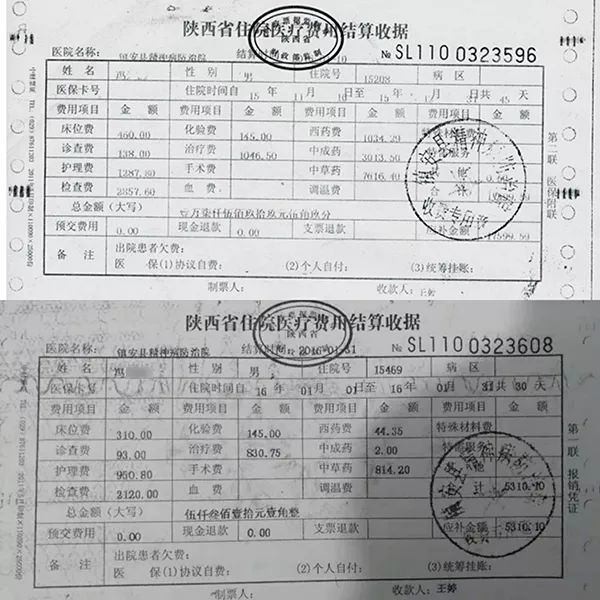 陕西省住院医疗费用结算收据
医院名称: 镇安县精神病防治院 结算 10 № SL110 0323596
姓名 冯 性别 男 住院号 15208 病区
医保卡号 住院时间自 15 年 11 月 日至 15 年 月 31 日共 45 天
费用项目 金额 费用项目 金额 费用项目 金额
床位费 460.00 化验费 145.00 西药费 1034.20
诊查费 138.00 治疗费 1046.50 中成药 3013.50
护理费 手术费 中草药 7616.40
检查费 2857.60 血费 调温费
总金额(大写) 壹万柒仟伍佰玖拾玖元伍角玖分
预交费用 0.00 现金退款 0.00 支票退款 应补金额 17599.59
备注 出院患者欠费:
医保(1)协议自费: (2)个人自付: (3)统筹挂账:
制票人: 收款人: 王婷
第二联 医保附联
镇安县精神病防治院
收费专用章
陕西省住院医疗费用结算收据
医院名称: 镇安县精神病防治院 结算 2016 01 31 № SL110 0323608
姓名 冯 性别 男 住院号 15469 病区
医保卡号 住院时间自 16 年 01 月 01 日至 16 年 01 月 31 日共 30 天
费用项目 金额 费用项目 金额 费用项目 金额 费用项目 金额
床位费 310.00 化验费 145.00 西药费 44.35 特殊材料费
诊查费 93.00 治疗费 830.75 中成药 2.00 特需服务
护理费 950.80 手术费 中草药 814.20
检查费 2120.00 血费 调温费 计 5310.10
总金额(大写) 伍仟叁佰壹拾元壹角整
预交费用 0.00 现金退款 0.00 支票退款 0.00 应补金额 5310.10
备注 出院患者欠费:
医保(1)协议自费: (2)个人自付: (3)统筹挂账:
制票人: 收款人: 王婷
第一联 报销凭证